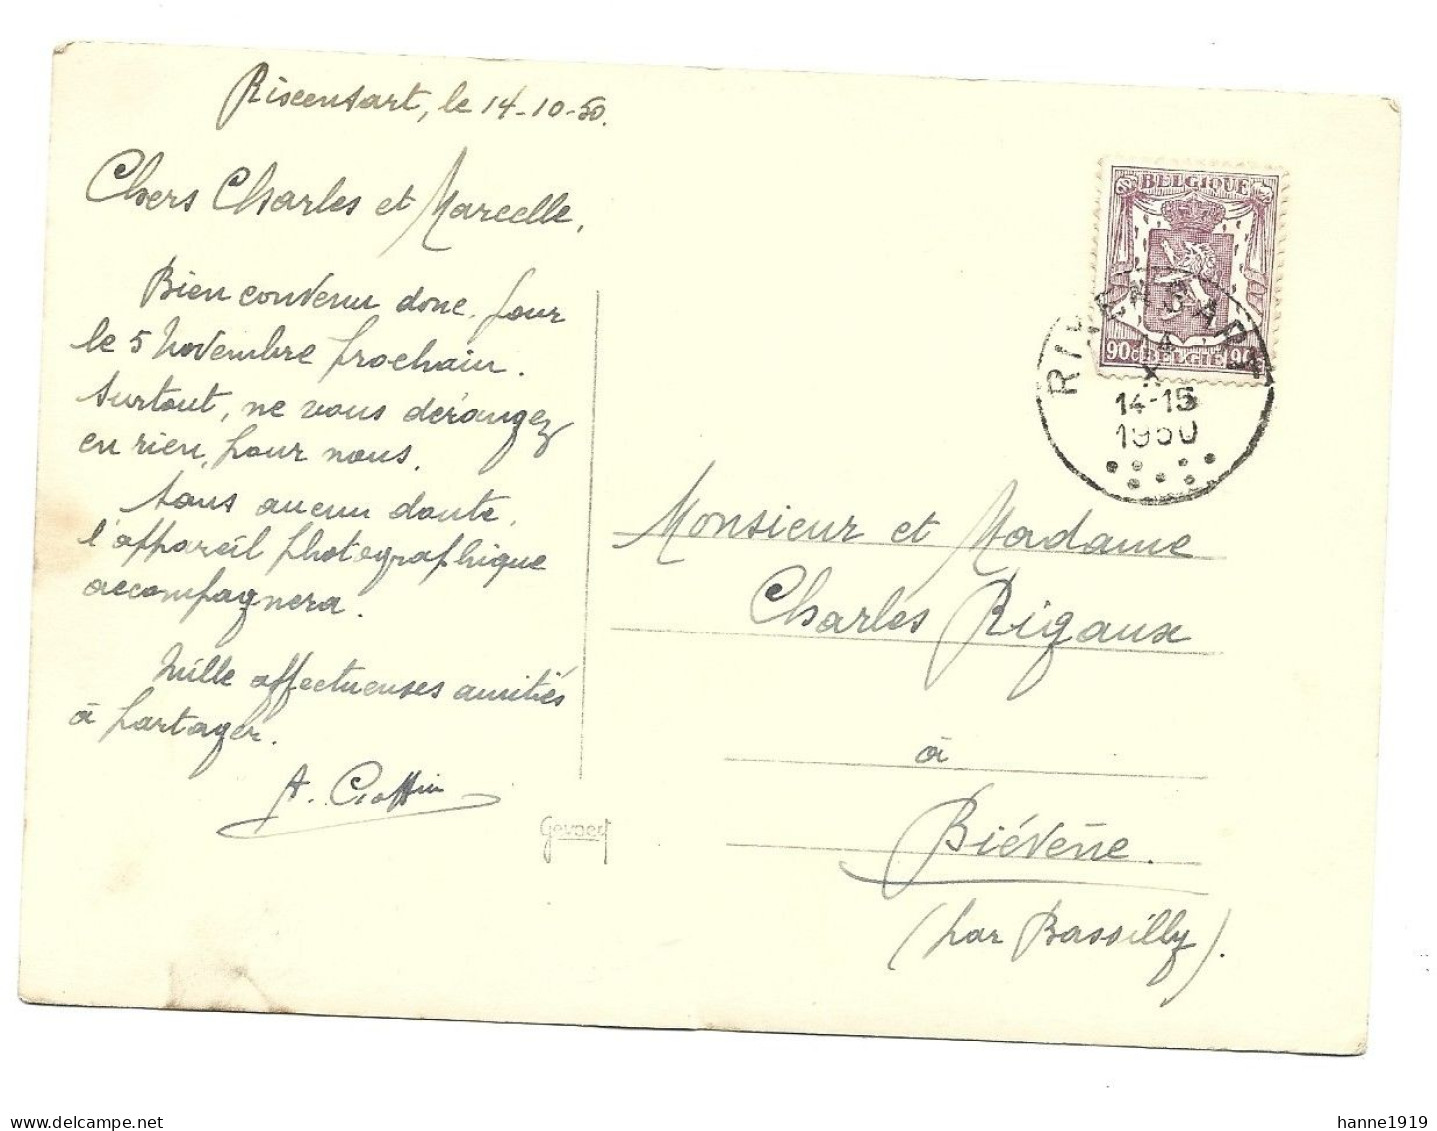 Rixensart, le 14-10-50.
Chers Charles et Marcelle,
Bien convenu donc, pour
le 5 Novembre prochain.
Surtout, ne vous dérangez
en rien, pour nous.
Sans aucun doute,
l'appareil photographique
accompagnera.
Mille affectueuses amitiés
à partager.
A.
Gevaert
BELGIQUE
90c BELGIE 90c
RIXENSART
14
X
14-15
1950
Monsieur et Madame
Charles Rigaux
à
Biévène.
(par Bassilly).
hanne1919